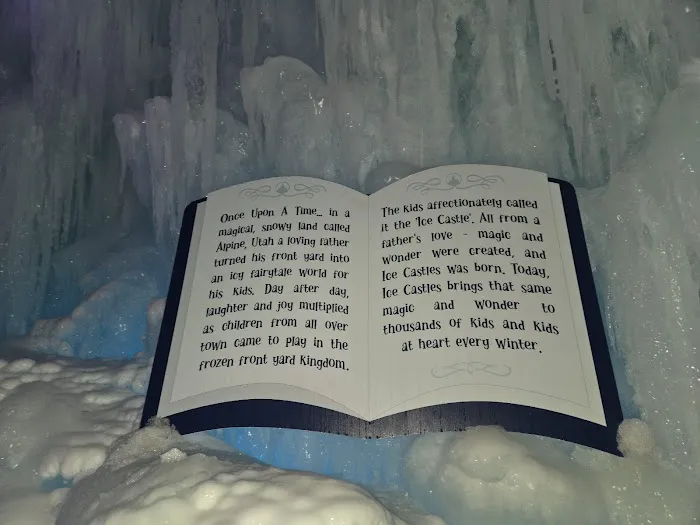 Once Upon A Time_ in a
magical, snowy land called
Alpine, Utah a loving father
turned his front yard into
an icy fairytale world for
his kids. Day after day,
laughter and joy multiplied
as children from all over
town came to play in the
frozen front yard kingdom.
The kids affectionately called
it the 'Ice Castle'. All from a
father's love - magic and
wonder were created, and
Ice Castles was born. Today,
Ice Castles brings that same
magic and wonder to
thousands of kids and kids
at heart every winter.